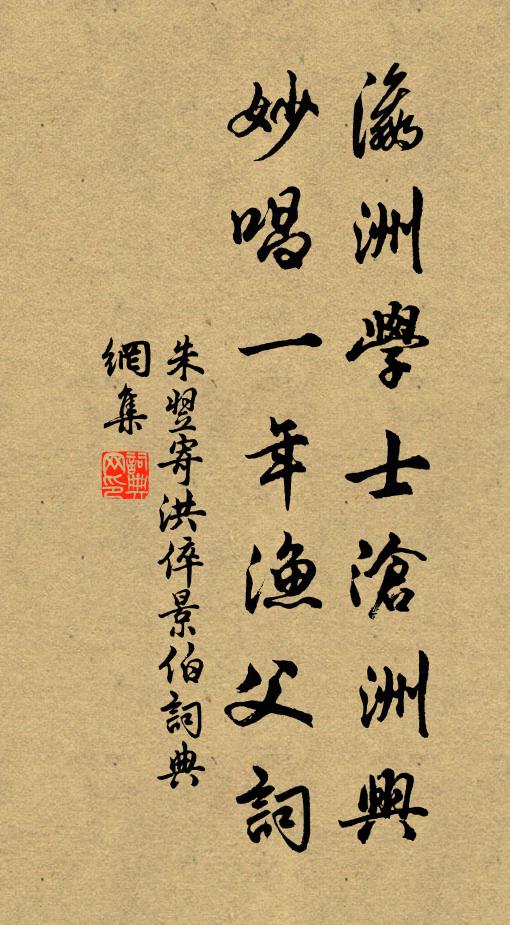 瀛洲學士滄洲興
妙唱一年漁父詞
朱翌寄洪倅景伯詞典
網集
詞典
网印